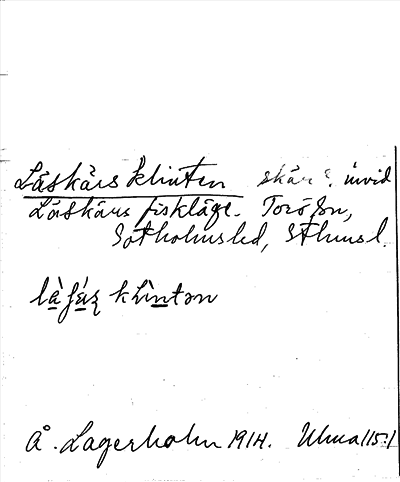 Låskärs klinten skär S. invid
Låskärs fiskläge. Torö sn,
Sotholms hd, Sthms l.
klinton
Å. Lagerholm 1914. Ulma 115:1